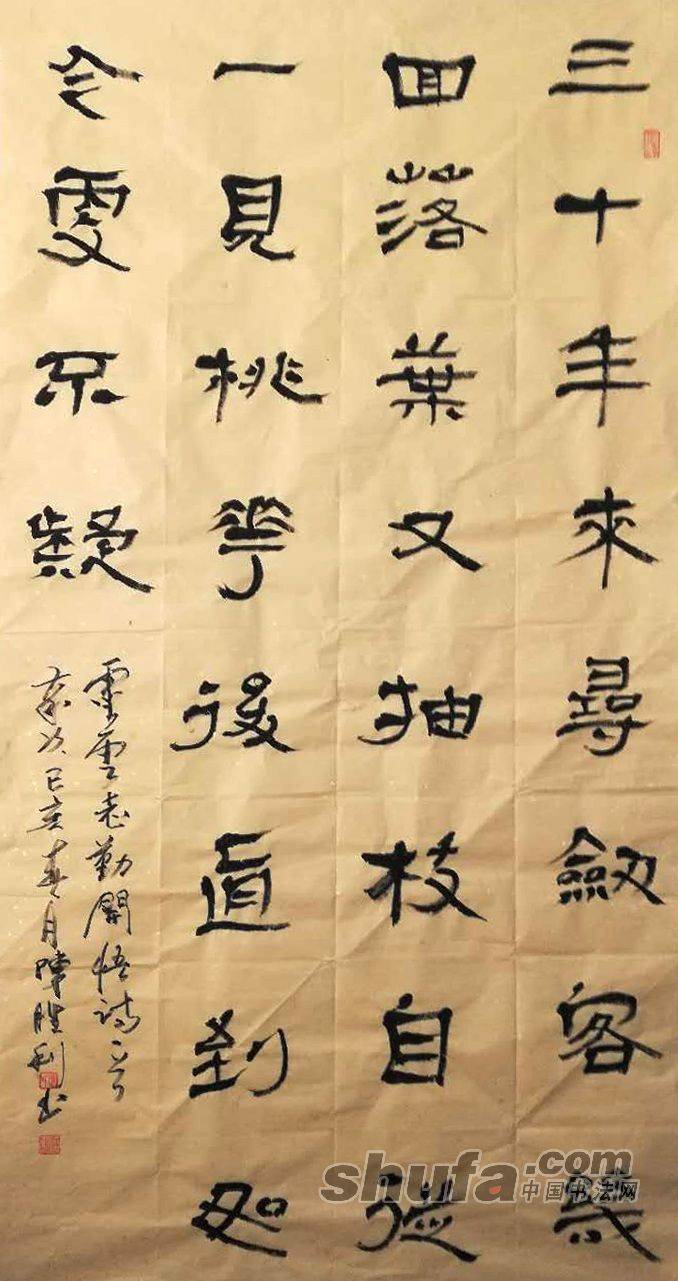 三十年來尋劒客幾
回落葉又抽枝自從
一見桃花後直到如
今更不疑
靈雲志勤開悟詩一首
歲次己亥春月陳勝利書
shufa.com
中国书法网